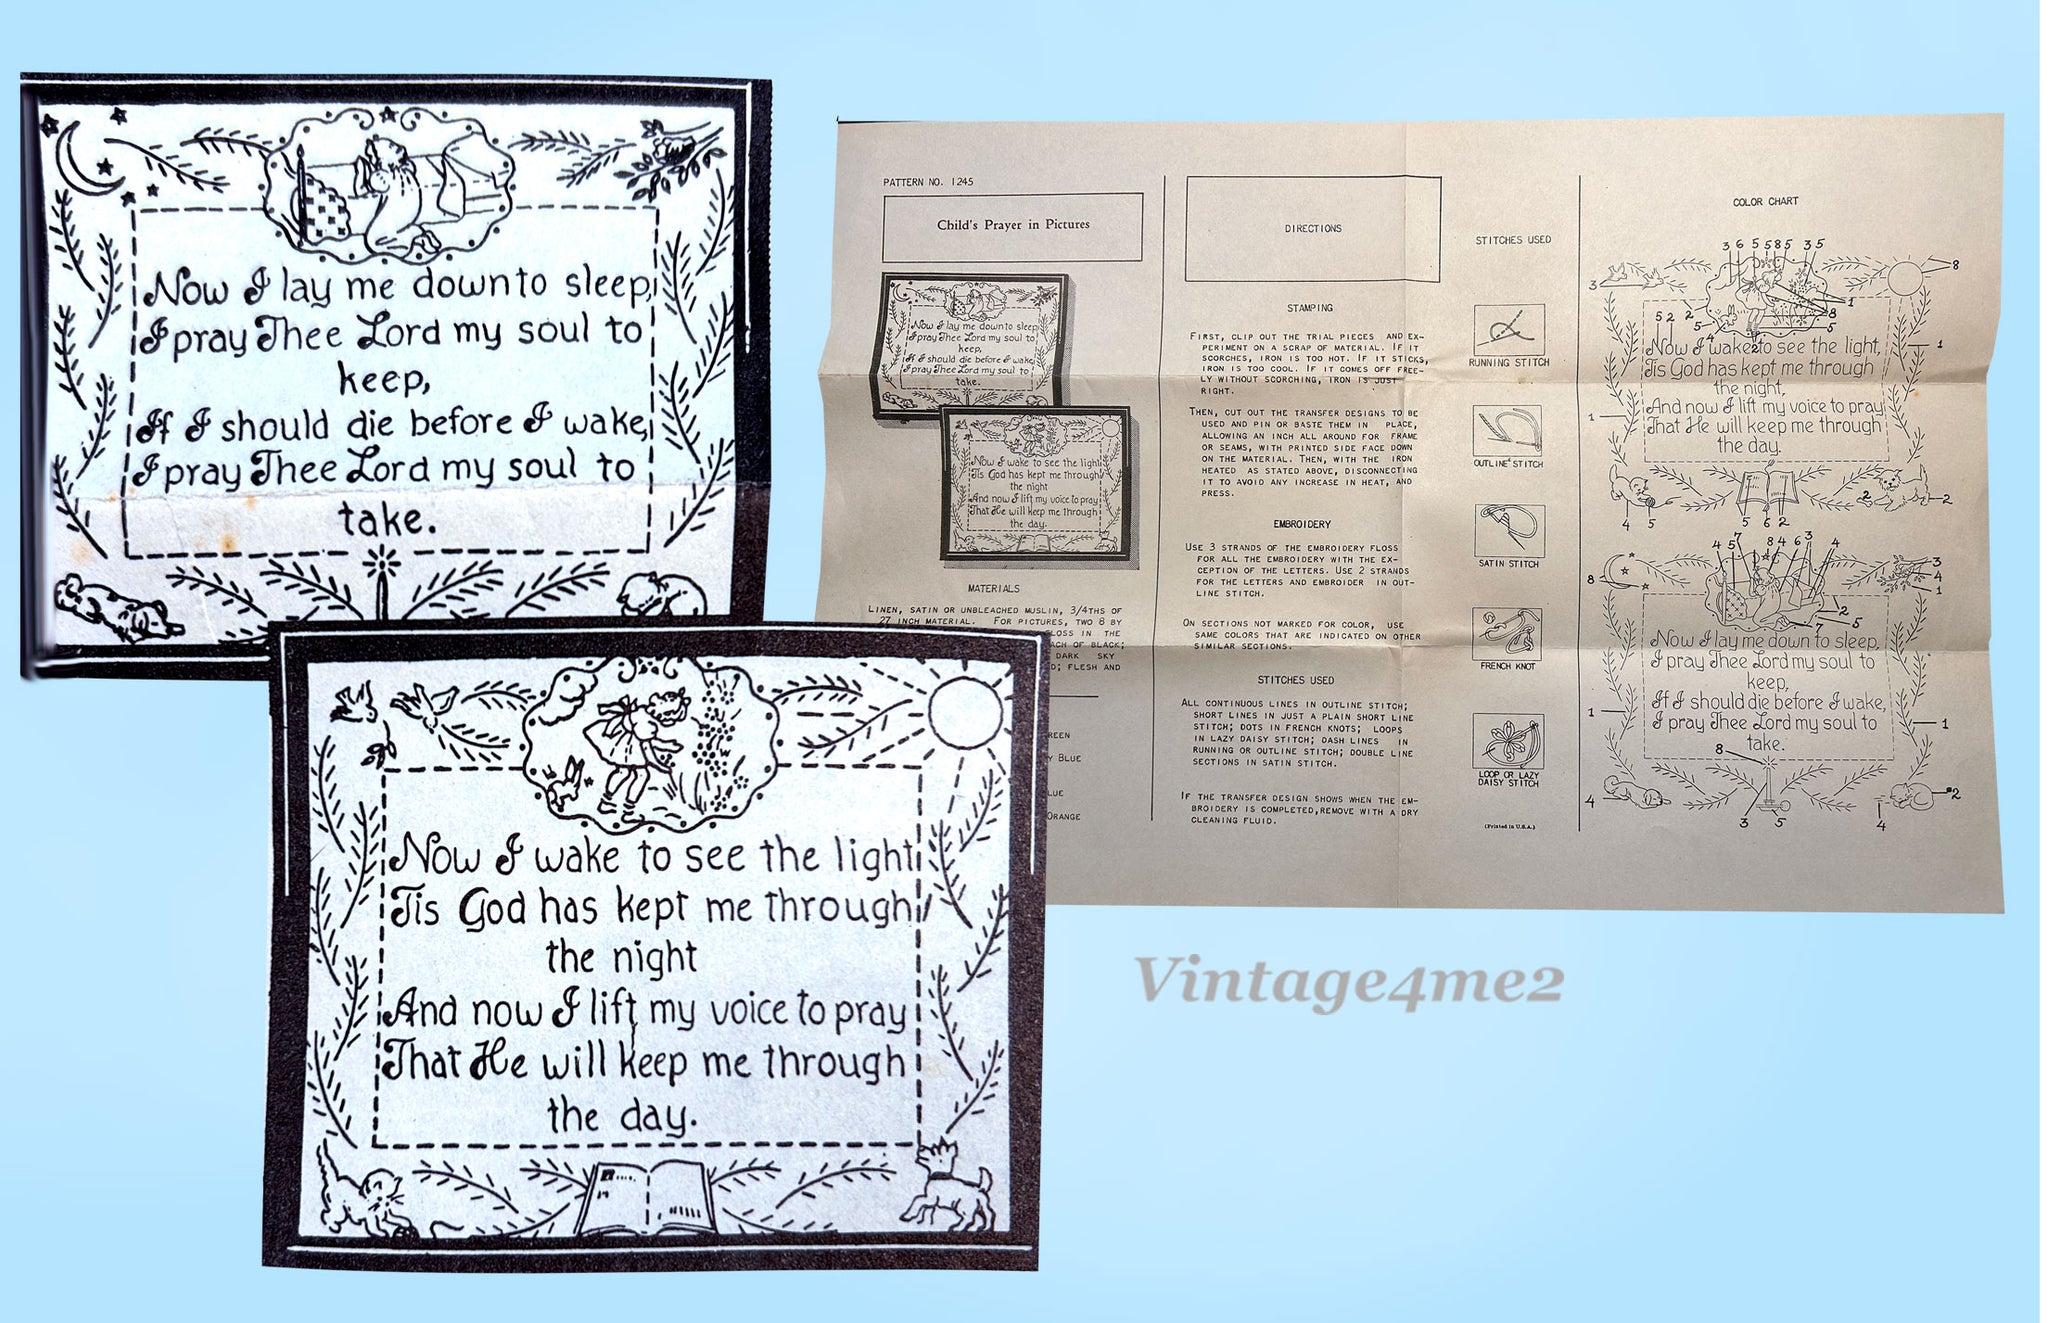 Now I lay me down to sleep,
I pray Thee Lord my soul to
keep,
If I should die before I wake,
I pray Thee Lord my soul to
take.
Now I wake to see the light
Tis God has kept me through
the night
And now I lift my voice to pray
That He will keep me through
the day.
PATTERN NO. 1245
Child's Prayer in Pictures
Now I lay me down to sleep,
I pray Thee Lord my soul to
keep,
If I should die before I wake,
I pray Thee Lord my soul to
take.
Now I wake to see the light
Tis God has kept me through
the night
And now I lift my voice to pray
That He will keep me through
the day.
MATERIALS
LINEN, SATIN OR UNBLEACHED MUSLIN, 3/4THS OF
27 INCH MATERIAL. FOR PICTURES, TWO 8 BY
LOSS IN THE
ACH OF BLACK;
DARK SKY
D; FLESH AND
REEN
Y BLUE
LUE
ORANGE
DIRECTIONS
STAMPING
FIRST, CLIP OUT THE TRIAL PIECES AND EX-
PERIMENT ON A SCRAP OF MATERIAL. IF IT
SCORCHES, IRON IS TOO HOT. IF IT STICKS,
IRON IS TOO COOL. IF IT COMES OFF FREE-
LY WITHOUT SCORCHING, IRON IS JUST
RIGHT.
THEN, CUT OUT THE TRANSFER DESIGNS TO BE
USED AND PIN OR BASTE THEM IN PLACE,
ALLOWING AN INCH ALL AROUND FOR FRAME
OR SEAMS, WITH PRINTED SIDE FACE DOWN
ON THE MATERIAL. THEN, WITH THE IRON
HEATED AS STATED ABOVE, DISCONNECTING
IT TO AVOID ANY INCREASE IN HEAT, AND
PRESS.
EMBROIDERY
USE 3 STRANDS OF THE EMBROIDERY FLOSS
FOR ALL THE EMBROIDERY WITH THE EX-
CEPTION OF THE LETTERS. USE 2 STRANDS
FOR THE LETTERS AND EMBROIDER IN OUT-
LINE STITCH.
ON SECTIONS NOT MARKED FOR COLOR, USE
SAME COLORS THAT ARE INDICATED ON OTHER
SIMILAR SECTIONS.
STITCHES USED
ALL CONTINUOUS LINES IN OUTLINE STITCH;
SHORT LINES IN JUST A PLAIN SHORT LINE
STITCH; DOTS IN FRENCH KNOTS; LOOPS
IN LAZY DAISY STITCH; DASH LINES IN
RUNNING OR OUTLINE STITCH; DOUBLE LINE
SECTIONS IN SATIN STITCH.
IF THE TRANSFER DESIGN SHOWS WHEN THE EM-
BROIDERY IS COMPLETED, REMOVE WITH A DRY
CLEANING FLUID.
STITCHES USED
RUNNING STITCH
OUTLINE STITCH
SATIN STITCH
FRENCH KNOT
LOOP OR LAZY
DAISY STITCH
(Printed in U.S.A.)
COLOR CHART
3 6 5 5 8 5 3 5
8
3
1
8
5 2 2
5
5
4 2
Now I wake to see the light,
1
Tis God has kept me through
the night,
1
And now I lift my voice to pray
That He will keep me through
the day.
2 2
4 5 5 6 2
4 5 7 8 4 6 3 4
3
8
4
1
2
5
7
Now I lay me down to sleep,
I pray Thee Lord my soul to
keep,
If I should die before I wake,
1
I pray Thee Lord my soul to
1
take.
8
4
2
3 5 4
Vintage4me2